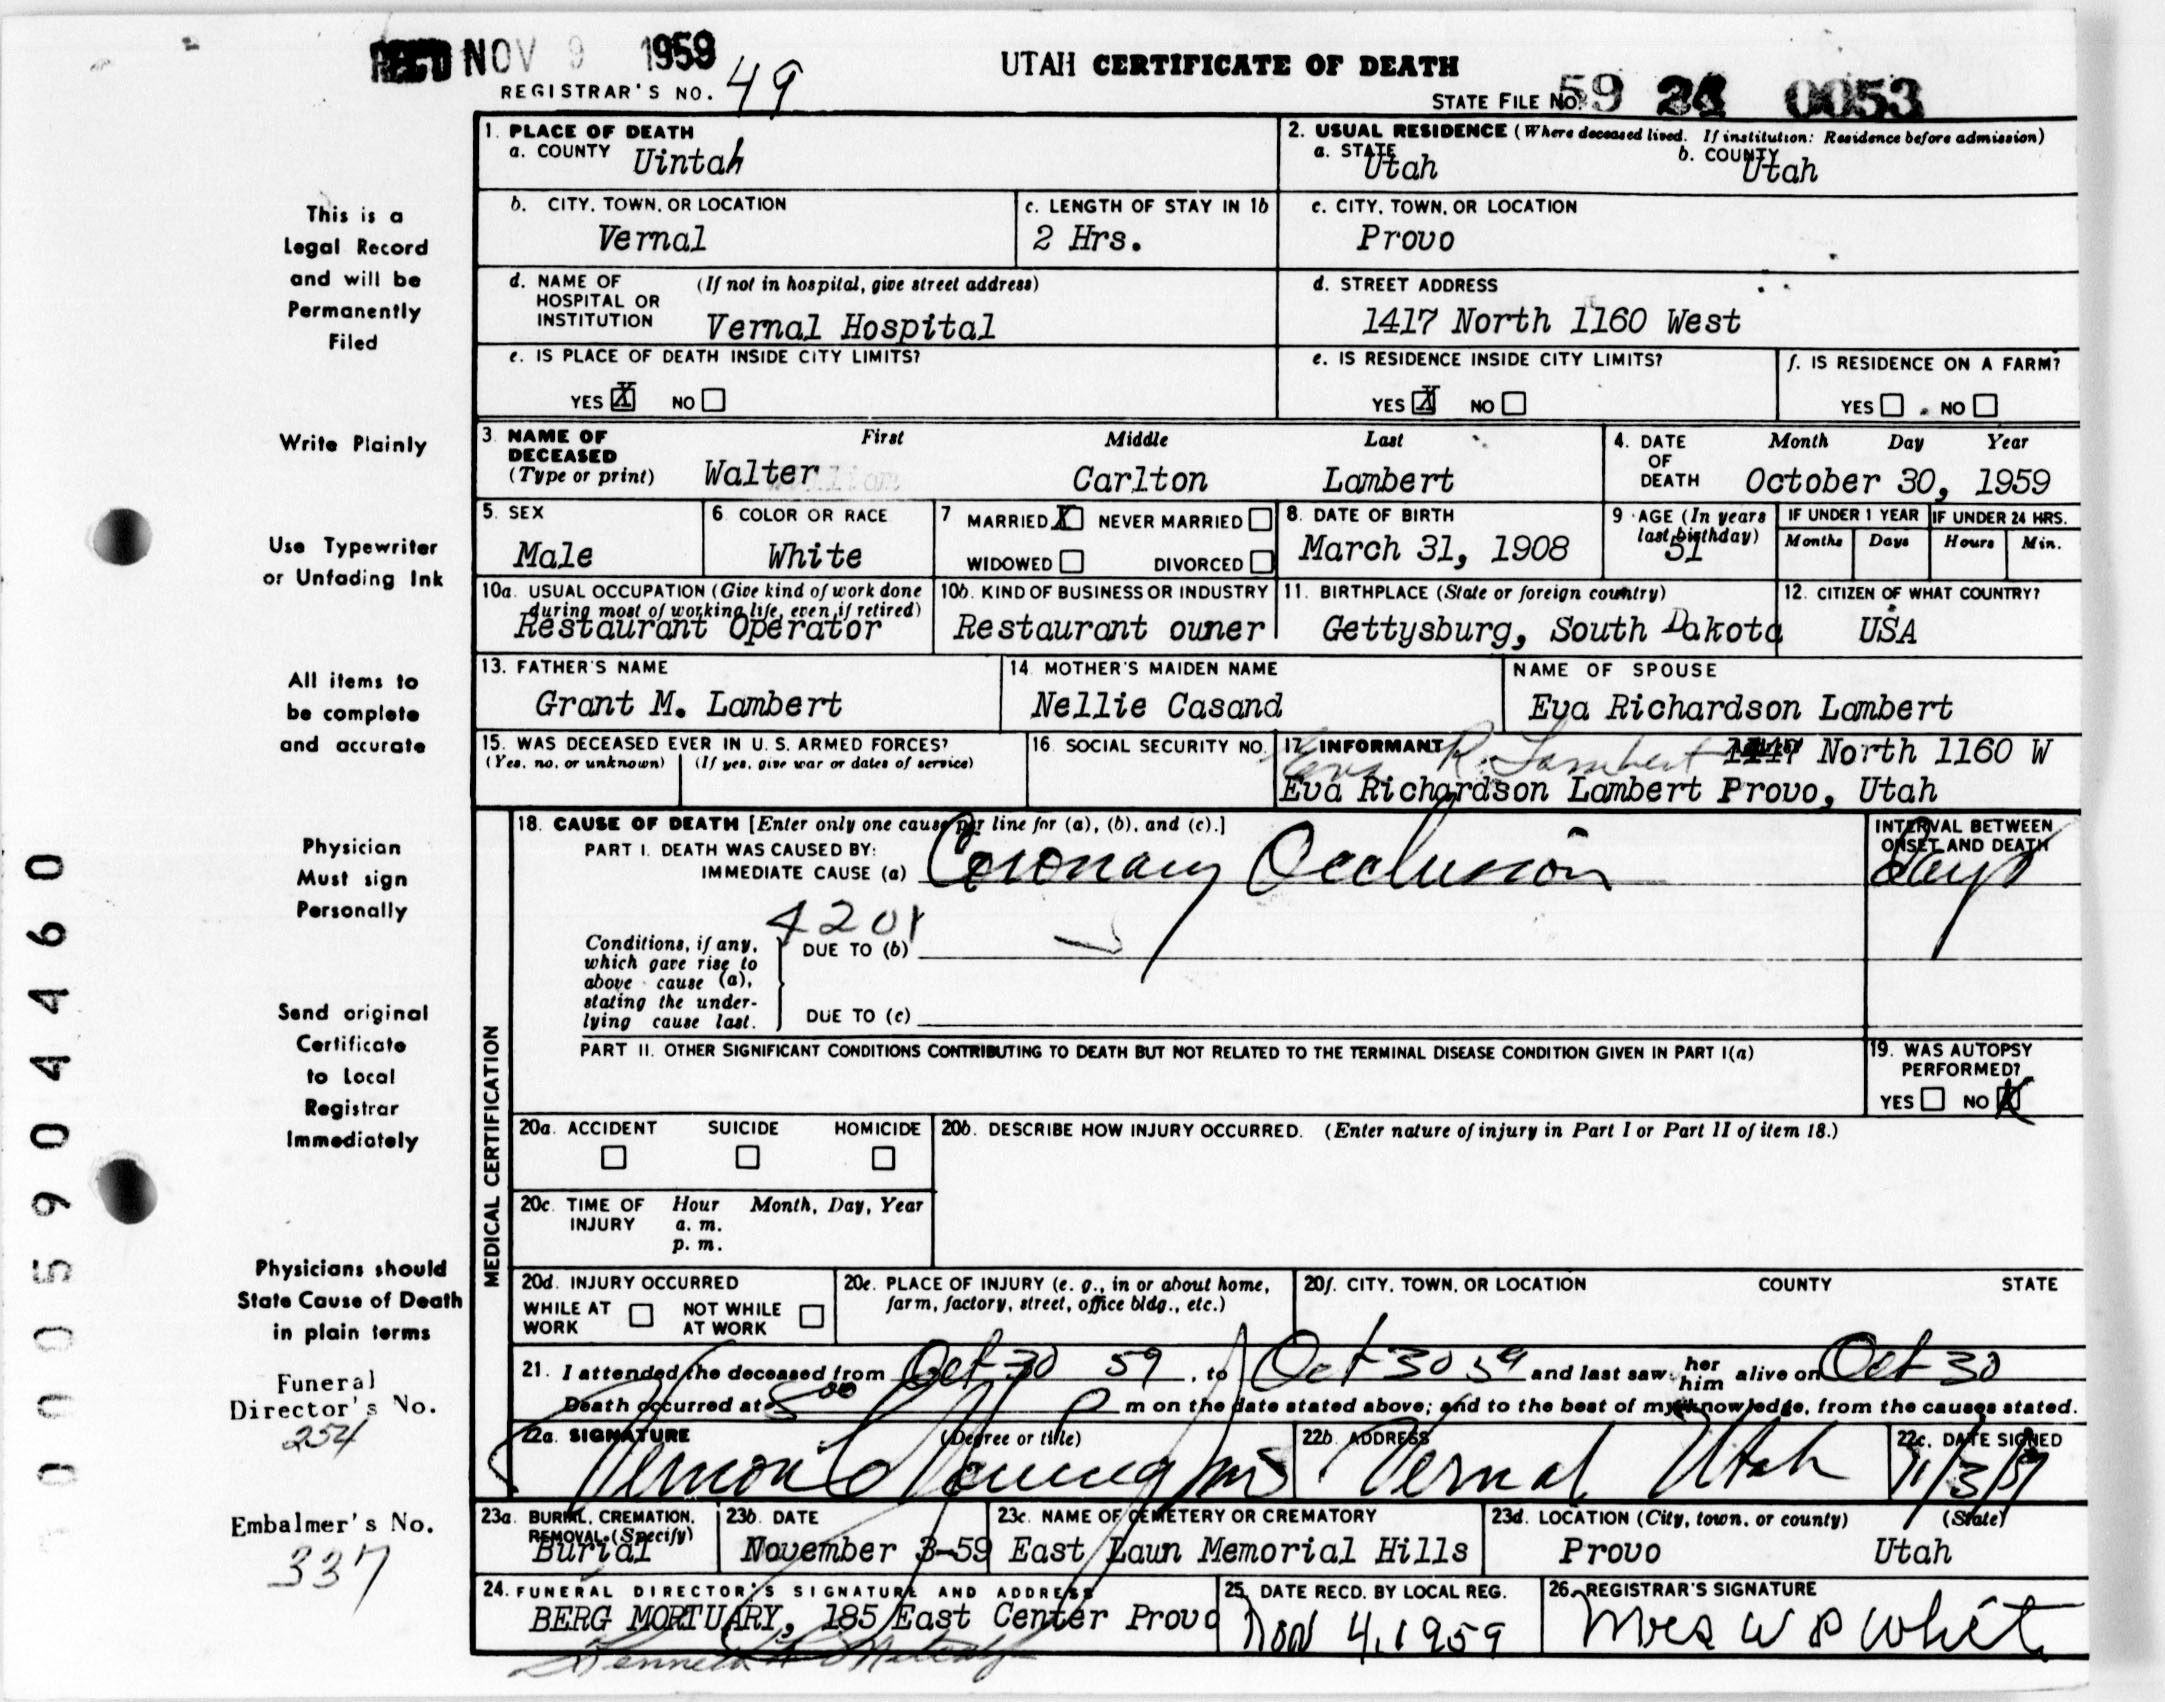 REC'D NOV 9 1959
UTAH CERTIFICATE OF DEATH
REGISTRAR'S NO. 49
STATE FILE No. 59 0053
1. PLACE OF DEATH
a. COUNTY Uintah
2. USUAL RESIDENCE (Where deceased lived. If institution: Residence before admission)
a. STATE Utah b. COUNTY Utah
b. CITY, TOWN, OR LOCATION Vernal
c. LENGTH OF STAY IN 1b 2 Hrs.
c. CITY, TOWN, OR LOCATION Provo
d. NAME OF HOSPITAL OR INSTITUTION (If not in hospital, give street address) Vernal Hospital
d. STREET ADDRESS 1417 North 1160 West
e. IS PLACE OF DEATH INSIDE CITY LIMITS? YES X NO
e. IS RESIDENCE INSIDE CITY LIMITS? YES X NO
f. IS RESIDENCE ON A FARM? YES NO
3. NAME OF DECEASED (Type or print) First Middle Last
Walter Carlton Lambert
4. DATE OF DEATH Month Day Year
October 30, 1959
5. SEX Male
6. COLOR OR RACE White
7 MARRIED X NEVER MARRIED WIDOWED DIVORCED
8. DATE OF BIRTH March 31, 1908
9. AGE (In years last birthday) 51
IF UNDER 1 YEAR Months Days
IF UNDER 24 HRS. Hours Min.
10a. USUAL OCCUPATION (Give kind of work done during most of working life, even if retired) Restaurant Operator
10b. KIND OF BUSINESS OR INDUSTRY Restaurant owner
11. BIRTHPLACE (State or foreign country) Gettysburg, South Dakota
12. CITIZEN OF WHAT COUNTRY? USA
13. FATHER'S NAME Grant M. Lambert
14 MOTHER'S MAIDEN NAME Nellie Casand
NAME OF SPOUSE Eva Richardson Lambert
15. WAS DECEASED EVER IN U. S. ARMED FORCES? (Yes, no, or unknown) (If yes, give war or dates of service)
16. SOCIAL SECURITY NO.
17. INFORMANT Eva R. Lambert 1417 North 1160 W
Eva Richardson Lambert Provo, Utah
MEDICAL CERTIFICATION
18. CAUSE OF DEATH [Enter only one cause per line for (a), (b), and (c).]
INTERVAL BETWEEN ONSET AND DEATH
PART I. DEATH WAS CAUSED BY:
IMMEDIATE CAUSE (a) Coronary Occlusion Days
4201
Conditions, if any, which gave rise to above cause (a), stating the underlying cause last.
DUE TO (b)
DUE TO (c)
PART II. OTHER SIGNIFICANT CONDITIONS CONTRIBUTING TO DEATH BUT NOT RELATED TO THE TERMINAL DISEASE CONDITION GIVEN IN PART I(a)
19. WAS AUTOPSY PERFORMED? YES NO X
20a. ACCIDENT SUICIDE HOMICIDE
20b. DESCRIBE HOW INJURY OCCURRED. (Enter nature of injury in Part I or Part II of item 18.)
20c. TIME OF INJURY Hour a. m. p. m. Month, Day, Year
20d. INJURY OCCURRED WHILE AT WORK NOT WHILE AT WORK
20e. PLACE OF INJURY (e. g., in or about home, farm, factory, street, office bldg., etc.)
20f. CITY, TOWN, OR LOCATION COUNTY STATE
21. I attended the deceased from Oct 30 59, to Oct 30 59 and last saw her him alive on Oct 30
Death occurred at 5 00 P m on the date stated above; and to the best of my knowledge, from the causes stated.
22a. SIGNATURE (Degree or title)
22b. ADDRESS Vernal Utah
22c. DATE SIGNED 11/3/59
23a. BURIAL, CREMATION, REMOVAL (Specify) Burial
23b. DATE November 3-59
23c. NAME OF CEMETERY OR CREMATORY East Laun Memorial Hills
23d. LOCATION (City, town, or county) (State) Provo Utah
24. FUNERAL DIRECTOR'S SIGNATURE AND ADDRESS
BERG MORTUARY, 185 East Center Provo
25. DATE RECD. BY LOCAL REG. Nov 4, 1959
26. REGISTRAR'S SIGNATURE Mrs W P White
This is a
Legal Record
and will be
Permanently
Filed
Write Plainly
Use Typewriter
or Unfading Ink
All items to
be complete
and accurate
Physician
Must sign
Personally
Send original
Certificate
to Local
Registrar
Immediately
Physicians should
State Cause of Death
in plain terms
Funeral
Director's No.
254
Embalmer's No.
337
0005904460